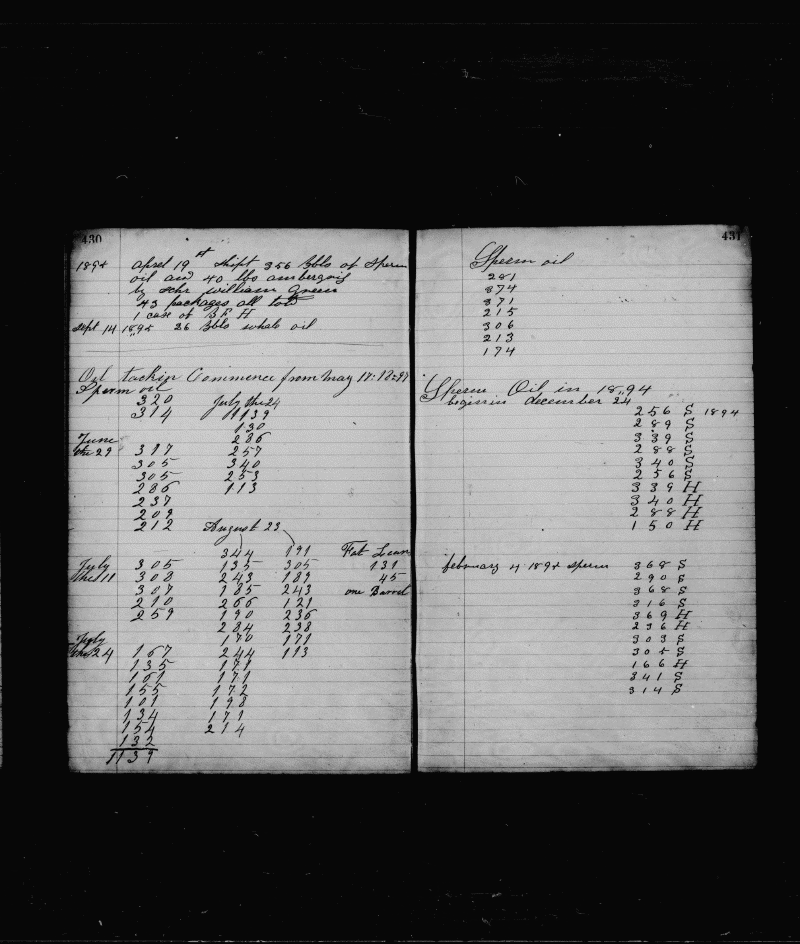 430
1894 aprel 19 st Shipt 356 Bbls of Sperm
oil and 40 lbs ambergris
by schr william Green
43 packages all told
1 case of B F H
Sept 14 1895 26 Bbls whale oil
Oil tackin Commence from may 17:18=97
Sperm oil
320 July the 24
314 1139
130
June 286
the 29 317 257
305 340
305 253
286 113
237
209
212 August 23
344 191 Fat Lean
July 305 135 305 131
the 11 308 243 189 45
307 185 243 one Barrel
210 266 121
259 190 236
284 238
July 170 171
the 24 167 244 113
135 171
161 171
155 172
101 198
134 171
154 214
132
1139
431
Sperm oil
281
374
371
215
306
213
174
Sperm Oil in 18,,94
beginin december 24
256 S 1894
289 S
339 S
288 S
340 S
256 S
339 H
340 H
288 H
150 H
february 4 1894 sperm 368 S
290 S
368 S
316 S
369 H
236 H
303 S
305 S
166 H
341 S
314 S